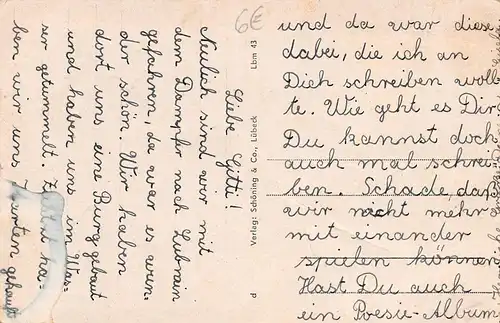 Liebe Gitti!
Neulich sind wir mit
dem Dampfer nach Lubmin
gefahren, da war es wun-
der schön. Wir haben
dort uns eine Burg gebaut
und haben uns im Was-
ser getummelt. ha-
ben wir uns Karten gekauft
und da war diese
dabei, die ich an
Dich schreiben woll-
te. Wie geht es Dir.
Du kannst doch
auch mal schrei-
ben. Schade, daß
wir nicht mehr
mit einander
spielen können.
Hast Du auch
ein Poesie-Album
6€
Verlag: Schöning & Co., Lübeck
Lbm 43
P